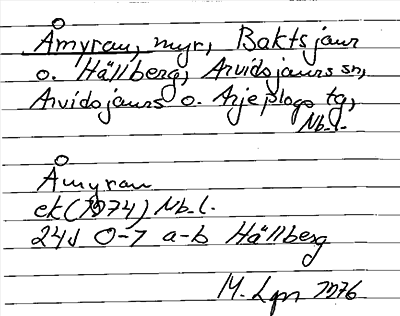 Åmyran, myr, Baktsjaur
o. Hällberg, Arvidsjaurs sn,
Arvidsjaurs o. Arjeplogs tg,
Nb. l.
Åmyran
ek (1974) Nb. l.
24J 0-7 a-b Hällberg
M. Lgn 1976